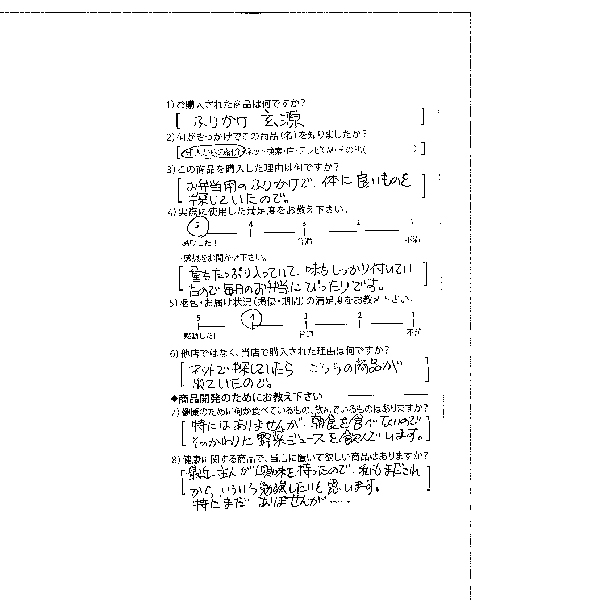 1)ご購入された商品は何ですか?
[ ふりかけ 玄源 ]
2)何がきっかけでこの商品(名)を知りましたか?
3)この商品を購入した理由は何ですか?
[ お弁当用のふりかけで、体に良いものを
探していたので。 ]
4)実際に使用した満足度をお教え下さい。
5 4 3 2 1
感動した! 普通 不満
感想をお聞かせ下さい。
[ 量もたっぷり入っていて、味もしっかり付いてい
るので毎日のお弁当にぴったりです。 ]
5)梱包・お届け状況(損傷・期間)の満足度をお教え下さい。
5 4 3 2 1
感動した! 普通 不満
6)他店ではなく、当店で購入された理由は何ですか?
[ ネットで探していたら こちらの商品が
出ていたので。 ]
◆商品開発のためにお教え下さい
7)健康のために何か食べているもの、飲んでいるものはありますか?
[ 特にはありませんが、朝食を食べないので
そのかわりに野菜ジュースを飲んでいます。 ]
8)健康に関する商品で、当店に置いて欲しい商品はありますか?
[ 最近、主人が興味を持ったので、私もまだこれ
から、いろいろ勉強したいと思います。 ]
特にまだ ありませんが……